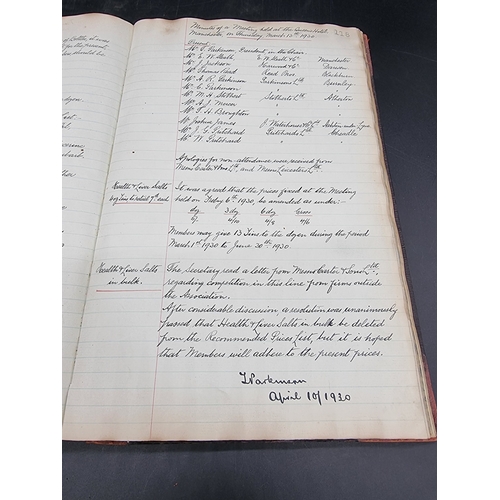 of Salts, it was
the present
should be
Minutes of a Meeting held at the Queens Hotel
Manchester on Thursday March 13th 1930
Present
Mr T. Parkinson, President in the Chair.
Mr E. W. Heath E. W. Heath & Co Manchester
Mr J. Jackson Droman
Mr Thomas Read Read Bros Blackburn
Mr A. R. Parkinson Parkinsons Ltd Burnley
Mr C. Parkinson " "
Mr M. H. Stothert Stotherts Ltd Atherton
Mr A. J. " "
Mr T. H. Broughton " "
Mr Joshua James J. Waterhouse & Co Ltd Ashton under Lyne
Mr J. G. Pritchard Pritchards Ltd Cheadle
Mr W. Pritchard " "
Apologies for non-attendance were received from
Messrs Ltd, and Messrs Leicesters Ltd.
Health & Liver Salts
It was agreed that the prices fixed at the Meeting
held on Friday 6th 1930, be amended as under:-
doz 3 doz 6 doz Gross
5/- 4/10 4/8 4/6
Members may give 13 Tins to the dozen during the period
March 1st 1930 to June 30th 1930.
Health & Liver Salts
in bulk.
The Secretary read a letter from Messrs & Sons Ltd,
regarding competition in this line from firms outside
the Association.
After considerable discussion, a resolution was unanimously
passed that Health & Liver Salts in bulk be deleted
from the Recommended Prices List, but it is hoped
that Members will adhere to the present prices.
T Parkinson
April 10/1930